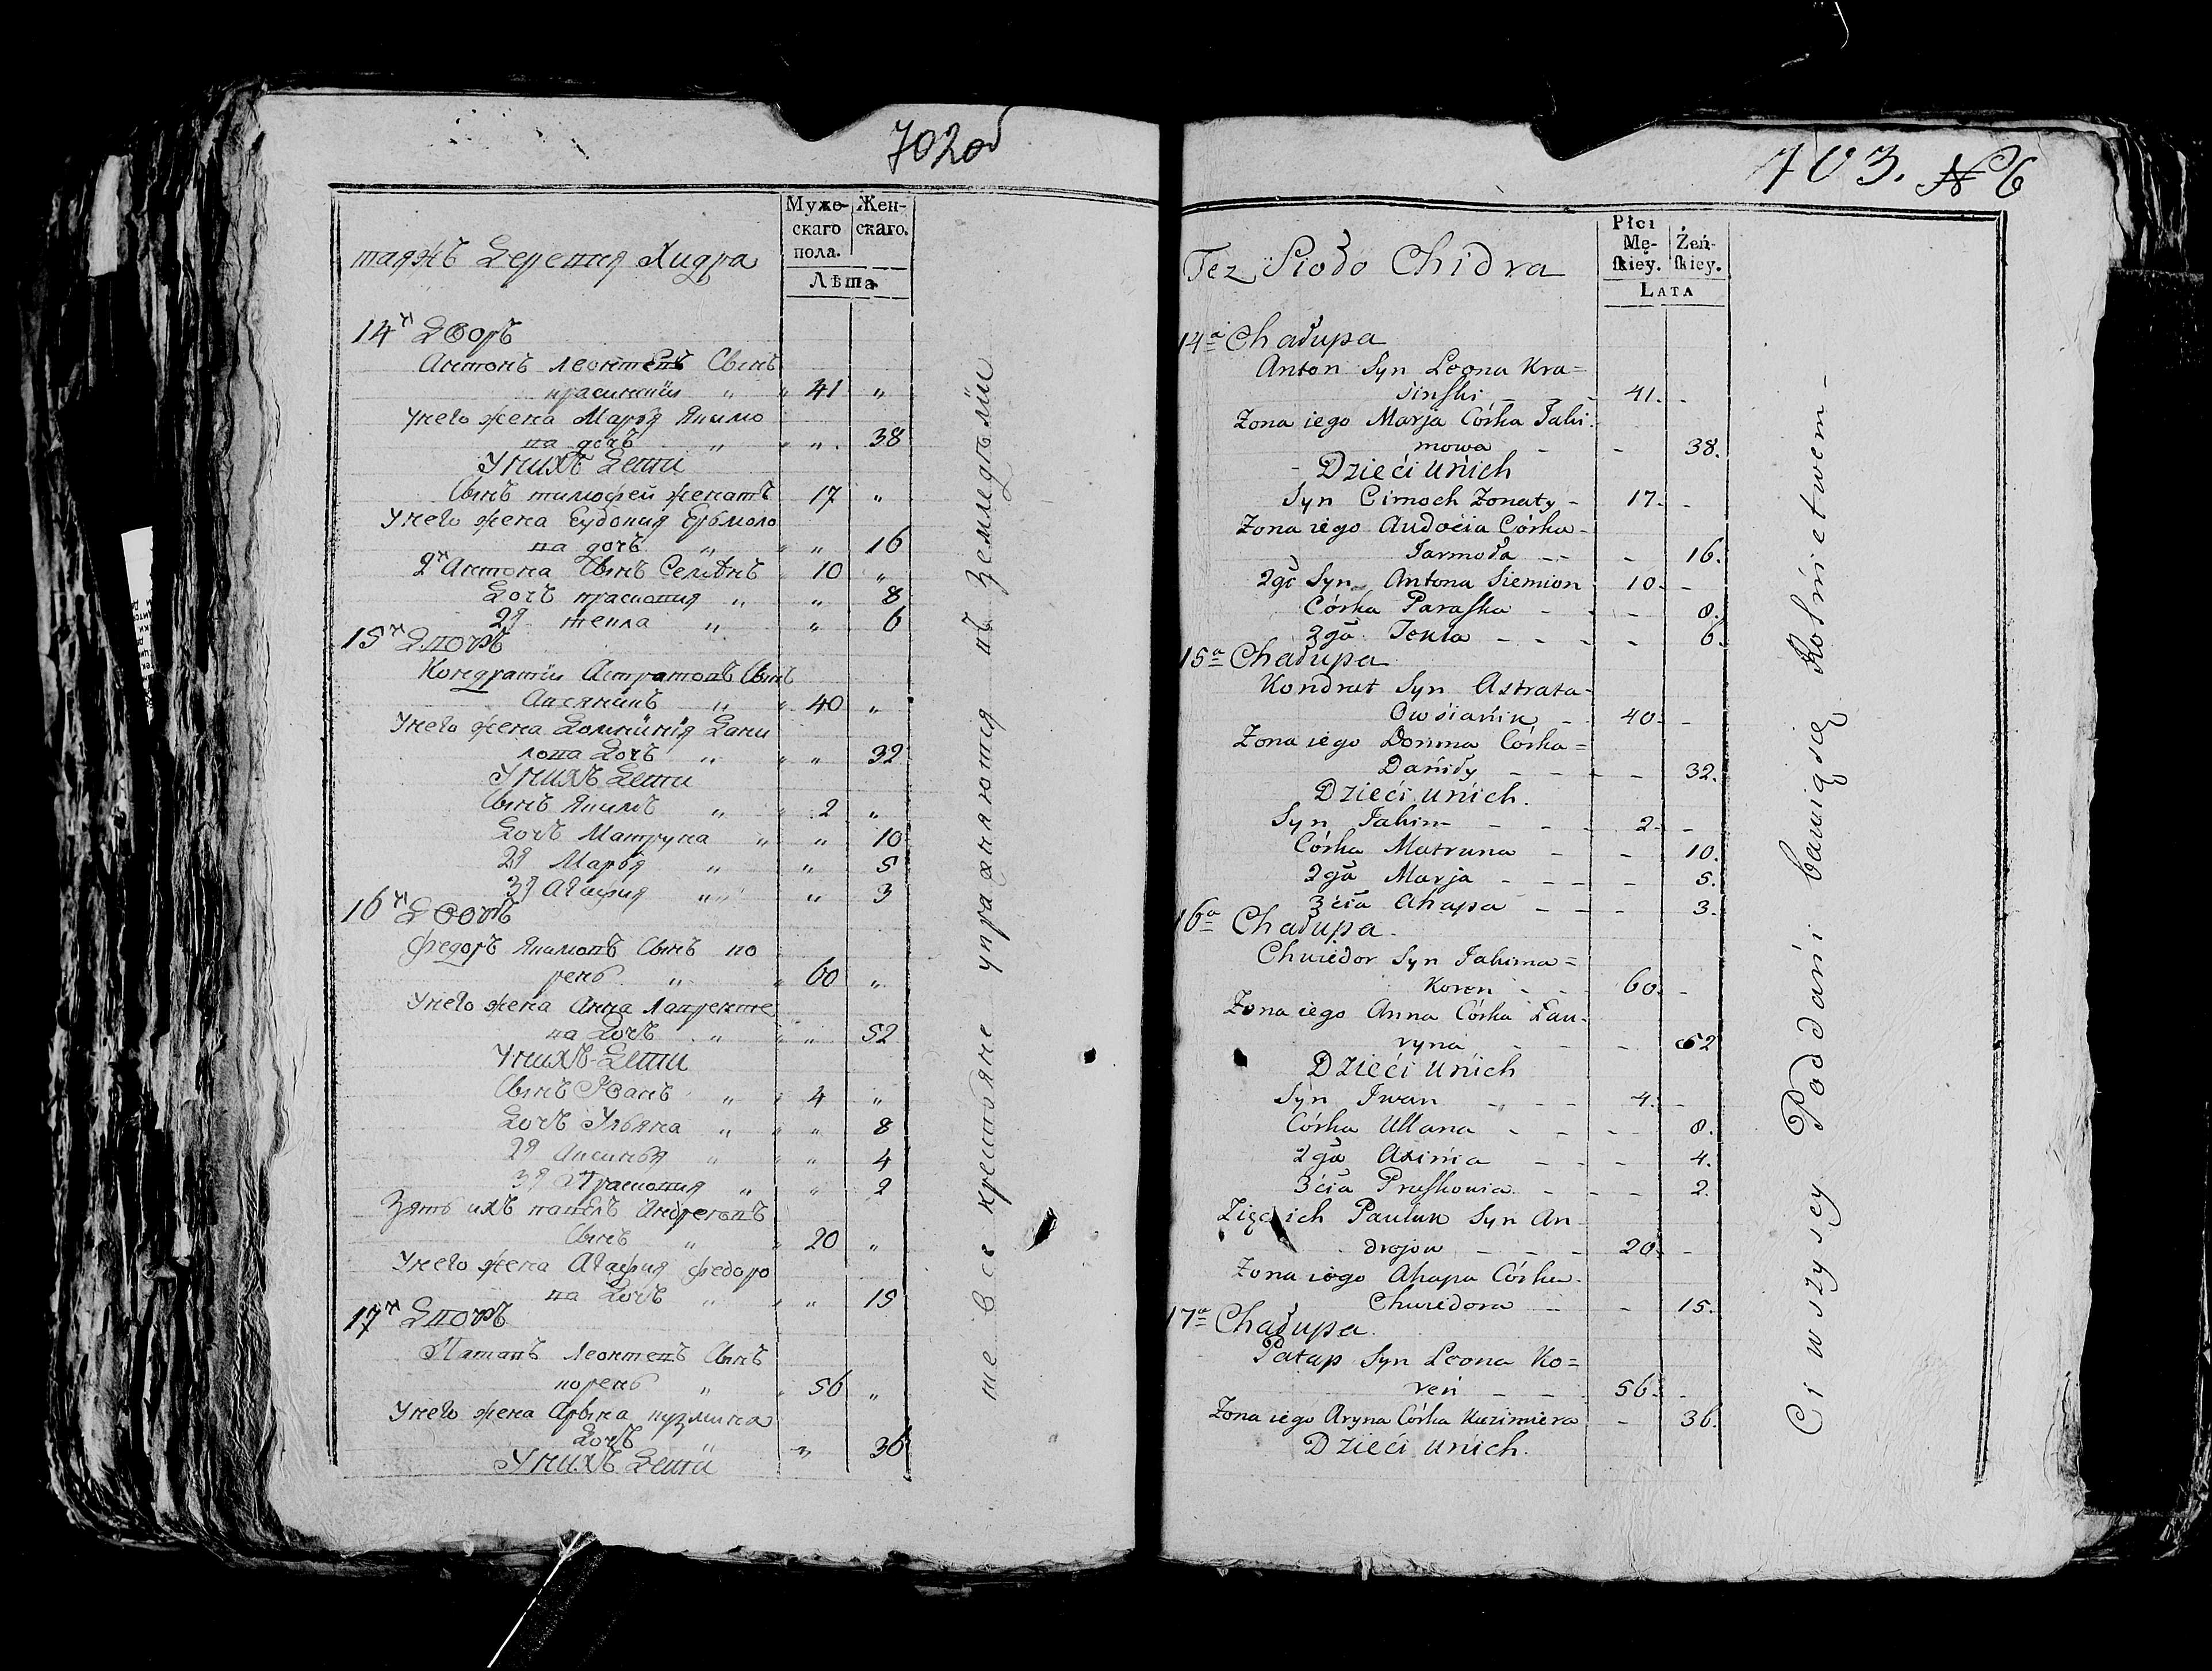 702об
Мужескаго пола.
Женскаго.
Лѣта
таяжъ Деревня Хидра
14й Дворъ
Антонъ Леонтевъ Сынъ
красинскій " " 41 "
Унего жена Марья Якимо
ва дочь " " " 38
Унихъ Дети
Сынъ тимофей женатъ 17 "
Унего жена Еудокия Ермоло
ва дочь " " " 16
2й Антона Сынъ Семѣнъ " 10 "
Дочь прасковия " " 8
2я текла " " 6
15й Дворъ
Кондратій Астратовъ Сынъ
Авсяникъ " " 40 "
Унего жена Домникія Дани
лова Дочь " " " 32
Унихъ Дети
Сынъ Якимъ " " 2 "
Дочь Матруна " " 10
2я Марья " " 5
3я Агафия " " 3
16й Дворъ
Федоръ Якимовъ Сынъ ко
рень " " 60 "
Унего жена Анна Лавренте
ва Дочь " " " 52
Унихъ Дети
Сынъ Иванъ " " 4 "
Дочь Ульяна " " " 8
2я Аксинья " " " 4
3я Прасковия " " 2
Зять ихъ павелъ Андреевъ
Сынъ " " 20 "
Унего жена Агафия федоро
ва Дочь " " " 15
17й Дворъ
Патапъ Леонтевъ Сынъ
корень " " 56 "
Унего жена Арына кузмина
Дочь " " 36
Унихъ Дети
те все крестьяне упражняются въ земледѣліи
703. N 6
Płci Mę-skiey.
Żeń-skiey.
LATA
Tez Sioło Chidra
14a Chałupa
Anton Syn Leona Kra=
sinski - - 41. -
Zona iego Marja Córka Jaki
mowa - - 38.
Dzieći unich
Syn Cimoch Zonaty - 17. -
Zona iego Audocia Córka -
Jarmoła - - - 16.
2gi Syn Antona Siemion 10. -
Córka Paraska - - - 8.
2ga Tekla - - - - 6.
15a Chałupa
Kondrat Syn Astrata -
Owsianik - 40. -
Zona iego Domna Córka =
Daniły - - - - 32.
Dzieći unich.
Syn Jakim - - - 2. -
Córka Matruna - - 10.
2ga Marja - - - - 5.
3cia Ahapa - - - 3.
16a Chałupa.
Chwiedor Syn Jakima =
Koren - - 60. -
Zona iego Anna Córka Łau-
ryna - - - 52
Dzieći unich
Syn Iwan - - - 4. -
Córka Ullana - - - - 8.
2ga Axinia - - - 4.
3cia Praskowia. - - - 2.
Zięć ich Pauluk Syn An
drejow - - - 20. -
Zona iego Ahapa Córka -
Chwiedora - - 15.
17a Chałupa.
Patap Syn Leona Ko=
reń - - 56. -
Zona iego Aryna Córka Kazimiera - 36.
Dzieći unich.
Ci wszysey Poddani bawią się Rolnictwem -